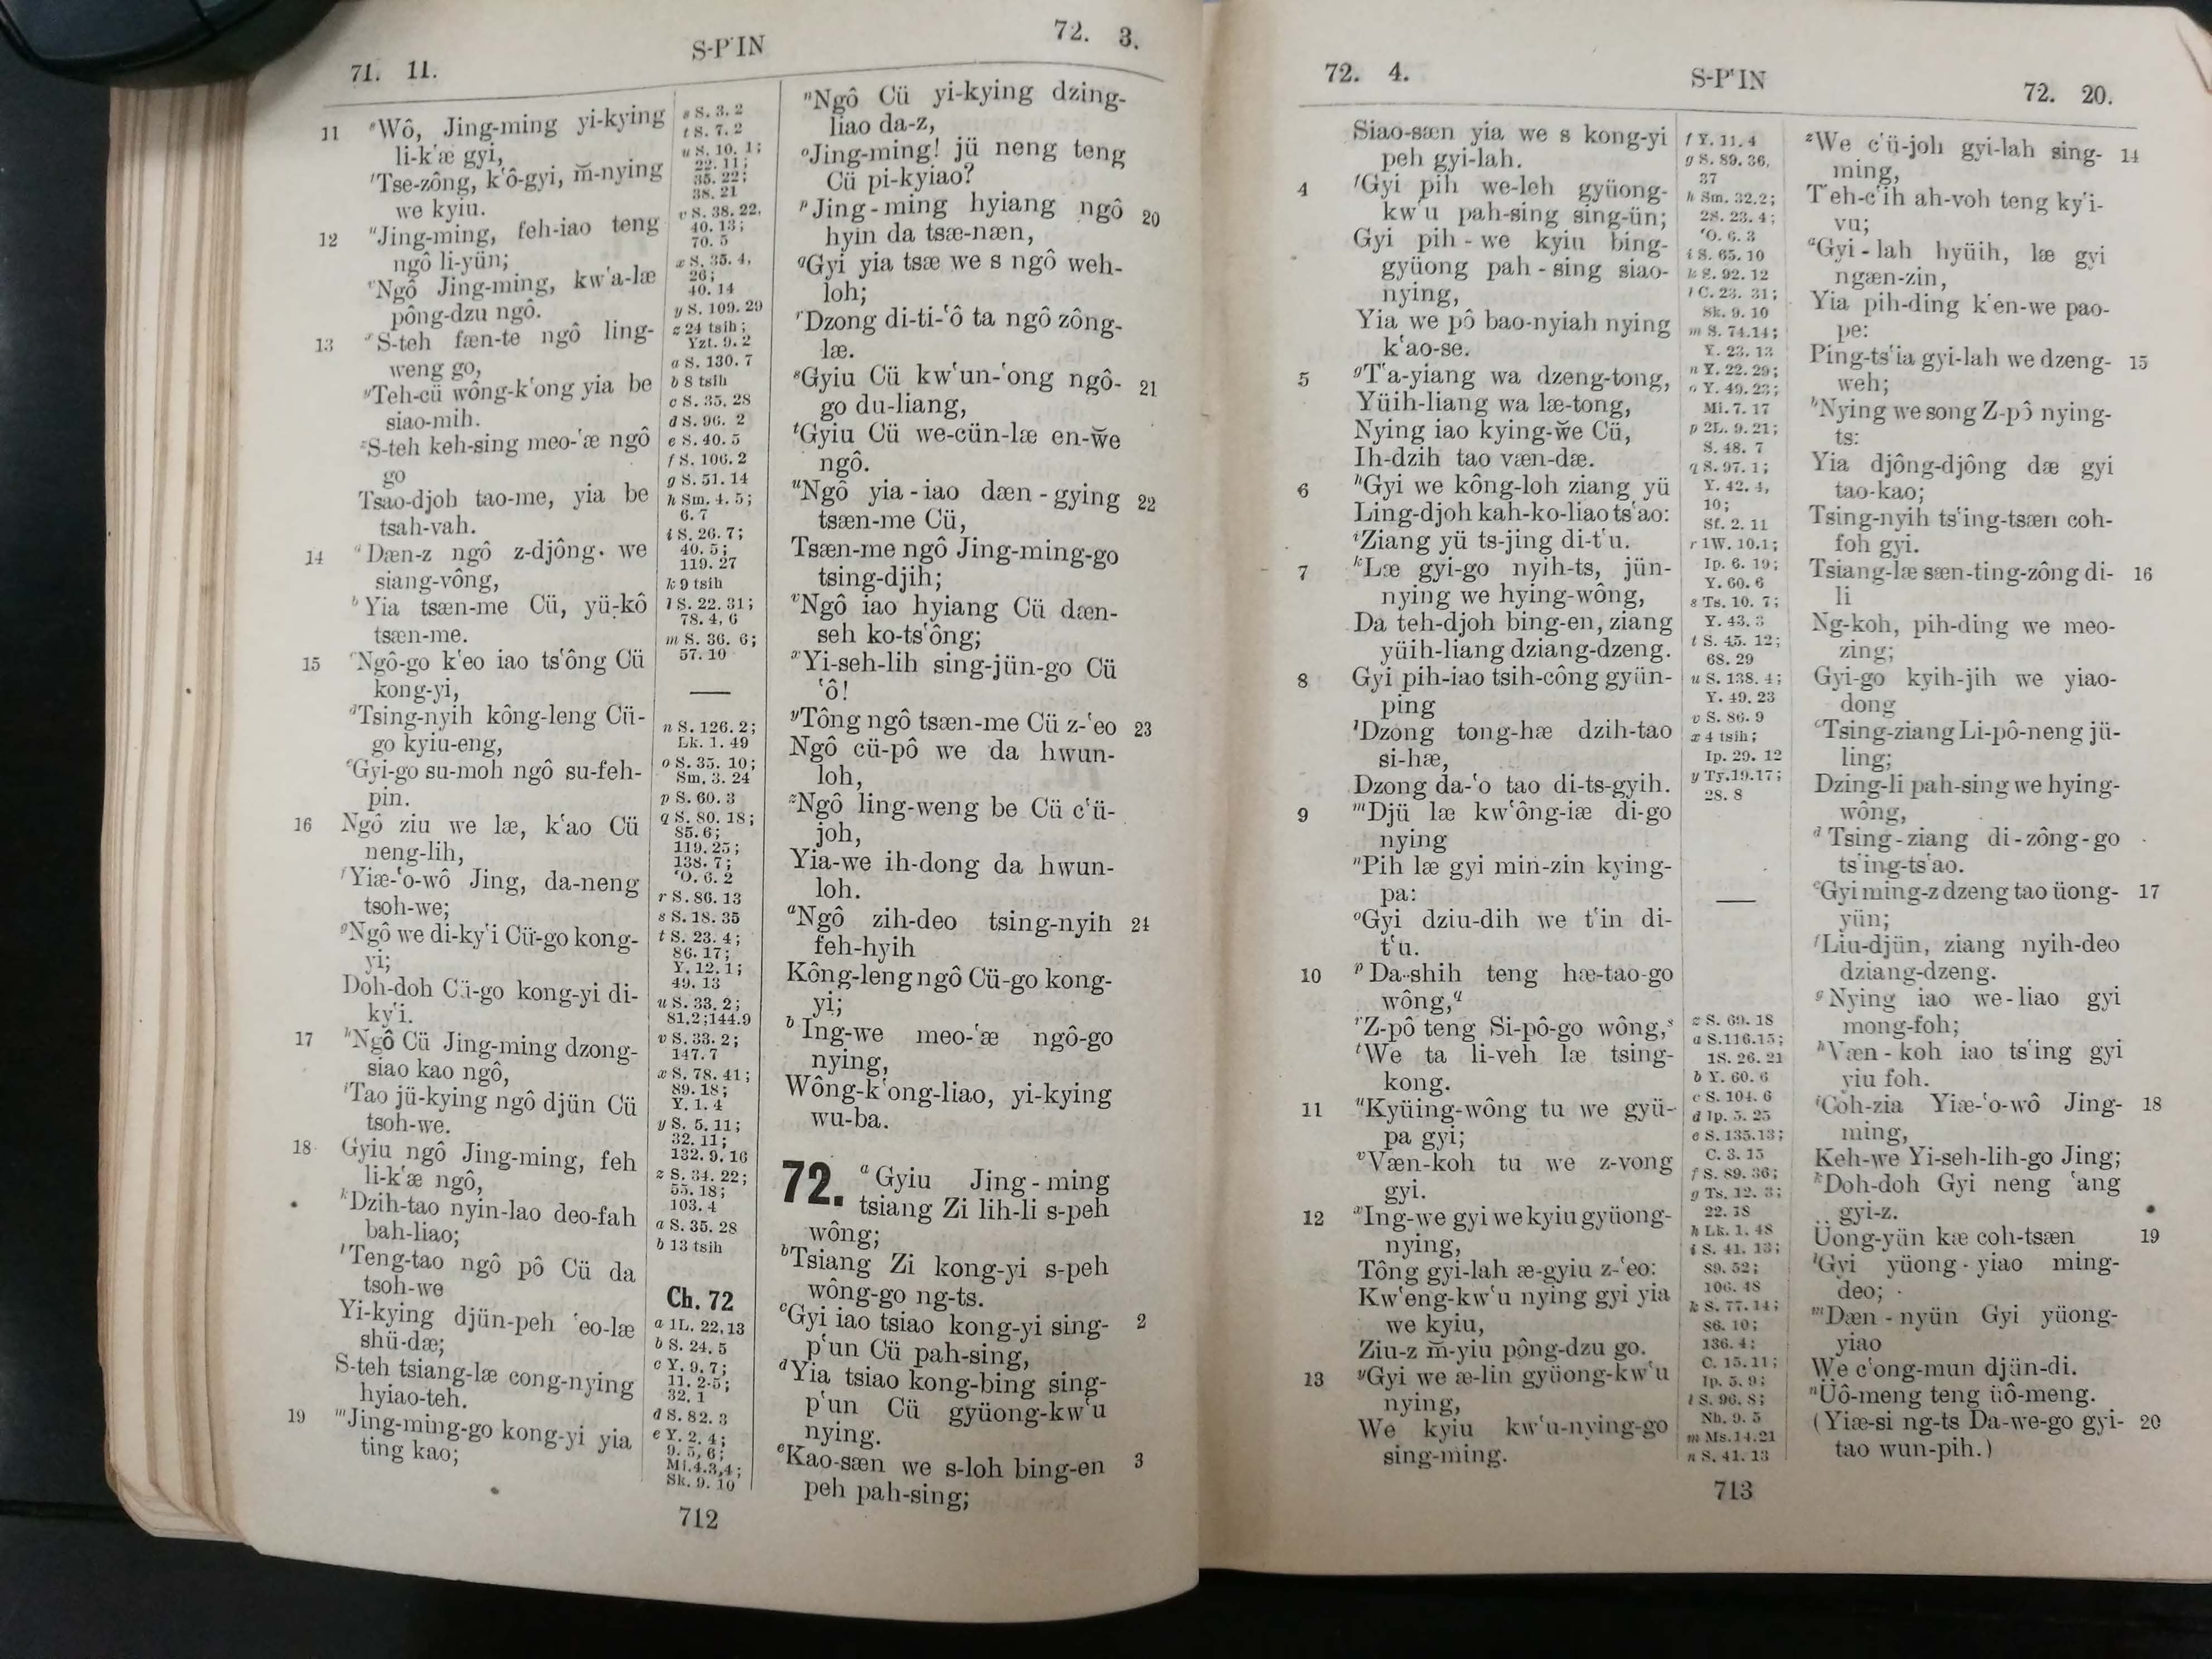 71. 11.
S-P‘IN
72. 3.
11 ˢWô, Jing-ming yi-kying
li-k‘æ gyi,
ᵗTse-zông, k‘ô-gyi, m̆-nying
we kyiu.
12 ᵘJing-ming, feh-iao teng
ngô li-yün;
ᵛNgô Jing-ming, kw‘a-læ
pông-dzu ngô.
13 ˣS-teh fæn-te ngô ling-
weng go,
ʸTeh-cü wông-k‘ong yia be
siao-mih.
ᶻS-teh keh-sing meo-‘æ ngô
go
Tsao-djoh tao-me, yia be
tsah-vah.
14 ᵃDæn-z ngô z-djông we
siang-vông,
ᵇYia tsæn-me Cü, yü-kô
tsæn-me.
15 ᶜNgô-go k‘eo iao ts‘ông Cü
kong-yi,
ᵈTsing-nyih kông-leng Cü-
go kyiu-eng,
ᵉGyi-go su-moh ngô su-feh-
pin.
16 Ngô ziu we læ, k‘ao Cü
neng-lih,
ᶠYiæ-‘o-wô Jing, da-neng
tsoh-we;
ᵍNgô we di-ky‘i Cü-go kong-
yi;
Doh-doh Cü-go kong-yi di-
ky‘i.
17 ʰNgô Cü Jing-ming dzong-
siao kao ngô,
ⁱTao jü-kying ngô djün Cü
tsoh-we.
18 Gyiu ngô Jing-ming, feh
li-k‘æ ngô,
ᵏDzih-tao nyin-lao deo-fah
bah-liao;
ˡTeng-tao ngô pô Cü da
tsoh-we
Yi-kying djün-peh ‘eo-læ
shü-dæ;
S-teh tsiang-læ cong-nying
hyiao-teh.
19 ᵐJing-ming-go kong-yi yia
ting kao;
s S. 3. 2
t S. 7. 2
u S. 10. 1;
22. 11;
35. 22;
38. 21
v S. 38. 22.
40. 13;
70. 5
x S. 35. 4,
26;
40. 14
y S. 109. 29
z 24 tsih;
Yzt. 9. 2
a S. 130. 7
b 8 tsih
c S. 35. 28
d S. 96. 2
e S. 40. 5
f S. 106. 2
g S. 51. 14
h Sm. 4. 5;
6. 7
i S. 26. 7;
40. 5;
119. 27
k 9 tsih
l S. 22. 31;
78. 4, 6
m S. 36. 6;
57. 10
n S. 126. 2;
Lk. 1. 49
o S. 35. 10;
Sm. 3. 24
p S. 60. 3
q S. 80. 18;
85. 6;
119. 25;
138. 7;
‘O. 6. 2
r S. 86. 13
s S. 18. 35
t S. 23. 4;
86. 17;
Y. 12. 1;
49. 13
u S. 33. 2;
81.2;144.9
v S. 33. 2;
147. 7
x S. 78. 41;
89. 18;
Y. 1. 4
y S. 5. 11;
32. 11;
132. 9. 16
z S. 34. 22;
55. 18;
103. 4
a S. 35. 28
b 13 tsih
Ch. 72
a 1L. 22,13
b S. 24. 5
c Y. 9. 7;
11. 2-5;
32. 1
d S. 82. 3
e Y. 2. 4;
9. 5, 6;
Mi.4.3,4;
Sk. 9. 10
ⁿNgô Cü yi-kying dzing-
liao da-z,
ᵒJing-ming! jü neng teng
Cü pi-kyiao?
ᵖJing-ming hyiang ngô 20
hyin da tsæ-næn,
ᑫGyi yia tsæ we s ngô weh-
loh;
ʳDzong di-ti-‘ô ta ngô zông-
læ.
ˢGyiu Cü kw‘un-‘ong ngô- 21
go du-liang,
ᵗGyiu Cü we-cün-læ en-w̆e
ngô.
ᵘNgô yia-iao dæn-gying 22
tsæn-me Cü,
Tsæn-me ngô Jing-ming-go
tsing-djih;
ᵛNgô iao hyiang Cü dæn-
seh ko-ts‘ông;
ˣYi-seh-lih sing-jün-go Cü
‘ô!
ʸTông ngô tsæn-me Cü z-‘eo 23
Ngô cü-pô we da hwun-
loh,
ᶻNgô ling-weng be Cü c‘ü-
joh,
Yia-we ih-dong da hwun-
loh.
ᵃNgô zih-deo tsing-nyih 24
feh-hyih
Kông-leng ngô Cü-go kong-
yi;
ᵇIng-we meo-‘æ ngô-go
nying,
Wông-k‘ong-liao, yi-kying
wu-ba.
72. ᵃGyiu Jing-ming
tsiang Zi lih-li s-peh
wông;
ᵇTsiang Zi kong-yi s-peh
wông-go ng-ts.
ᶜGyi iao tsiao kong-yi sing- 2
p‘un Cü pah-sing,
ᵈYia tsiao kong-bing sing-
p‘un Cü gyüong-kw‘u
nying.
ᵉKao-sæn we s-loh bing-en 3
peh pah-sing;
712
72. 4.
S-P‘IN
72. 20.
Siao-sæn yia we s kong-yi
peh gyi-lah.
4 ᶠGyi pih we-leh gyüong-
kw‘u pah-sing sing-ün;
Gyi pih-we kyiu bing-
gyüong pah-sing siao-
nying,
Yia we pô bao-nyiah nying
k‘ao-se.
5 ᵍT‘a-yiang wa dzeng-tong,
Yüih-liang wa læ-tong,
Nying iao kying-w̆e Cü,
Ih-dzih tao væn-dæ.
6 ʰGyi we kông-loh ziang yü
Ling-djoh kah-ko-liao ts‘ao:
ⁱZiang yü ts-jing di-t‘u.
7 ᵏLæ gyi-go nyih-ts, jün-
nying we hying-wông,
Da teh-djoh bing-en, ziang
yüih-liang dziang-dzeng.
8 Gyi pih-iao tsih-công gyün-
ping
ˡDzong tong-hæ dzih-tao
si-hæ,
Dzong da-‘o tao di-ts-gyih.
9 ᵐDjü læ kw‘ông-iæ di-go
nying
ⁿPih læ gyi min-zin kying-
pa:
ᵒGyi dziu-dih we t‘in di-
t‘u.
10 ᵖDa-shih teng hæ-tao-go
wông,ᑫ
ʳZ-pô teng Si-pô-go wông,ˢ
ᵗWe ta li-veh læ tsing-
kong.
11 ᵘKyüing-wông tu we gyü-
pa gyi;
ᵛVæn-koh tu we z-vong
gyi.
12 ˣIng-we gyi we kyiu gyüong-
nying,
Tông gyi-lah æ-gyiu z-‘eo:
Kw‘eng-kw‘u nying gyi yia
we kyiu,
Ziu-z m̆-yiu pông-dzu go.
13 ʸGyi we æ-lin gyüong-kw‘u
nying,
We kyiu kw‘u-nying-go
sing-ming.
f Y. 11. 4
g S. 89. 36,
37
h Sm. 32.2;
2S. 23. 4;
‘O. 6. 3
i S. 65. 10
k S. 92. 12
l C. 23. 31;
Sk. 9. 10
m S. 74.14;
Y. 23. 13
n Y. 22. 29;
o Y. 49. 23;
Mi. 7. 17
p 2L. 9. 21;
S. 48. 7
q S. 97. 1;
Y. 42. 4,
10;
Sf. 2. 11
r 1W. 10.1;
Ip. 6. 19;
Y. 60. 6
s Ts. 10. 7;
Y. 43. 3
t S. 45. 12;
68. 29
u S. 138. 4;
Y. 49. 23
v S. 86. 9
x 4 tsih;
Ip. 29. 12
y Ty.19.17;
28. 8
z S. 69. 18
a S.116.15;
1S. 26. 21
b Y. 60. 6
c S. 104. 6
d Ip. 5. 25
e S. 135.13;
C. 3. 15
f S. 89. 36;
g Ts. 12. 3;
22. 18
h Lk. 1. 48
i S. 41. 13;
89. 52;
106. 48
k S. 77. 14;
86. 10;
136. 4;
C. 15. 11;
Ip. 5. 9;
l S. 96. 8;
Nh. 9. 5
m Ms.14.21
n S. 41. 13
ᶻWe c‘ü-joh gyi-lah sing- 14
ming,
T‘eh-c‘ih ah-voh teng ky‘i-
vu;
ᵃGyi-lah hyüih, læ gyi
ngæn-zin,
Yia pih-ding k‘en-we pao-
pe:
Ping-ts‘ia gyi-lah we dzeng- 15
weh;
ᵇNying we song Z-pô nying-
ts:
Yia djông-djông dæ gyi
tao-kao;
Tsing-nyih ts‘ing-tsæn coh-
foh gyi.
Tsiang-læ sæn-ting-zông di- 16
li
Ng-koh, pih-ding we meo-
zing;
Gyi-go kyih-jih we yiao-
dong
ᶜTsing-ziang Li-pô-neng jü-
ling;
Dzing-li pah-sing we hying-
wông,
ᵈTsing-ziang di-zông-go
ts‘ing-ts‘ao.
ᵉGyi ming-z dzeng tao üong- 17
yün;
ᶠLiu-djün, ziang nyih-deo
dziang-dzeng.
ᵍNying iao we-liao gyi
mong-foh;
ʰVæn-koh iao ts‘ing gyi
yiu foh.
ⁱCoh-zia Yiæ-‘o-wô Jing- 18
ming,
Keh-we Yi-seh-lih-go Jing;
ᵏDoh-doh Gyi neng ‘ang
gyi-z.
Üong-yün kæ coh-tsæn 19
ˡGyi yüong-yiao ming-
deo;
ᵐDæn-nyün Gyi yüong-
yiao
We c‘ong-mun djün-di.
ⁿÜô-meng teng üô-meng.
(Yiæ-si ng-ts Da-we-go gyi- 20
tao wun-pih.)
713